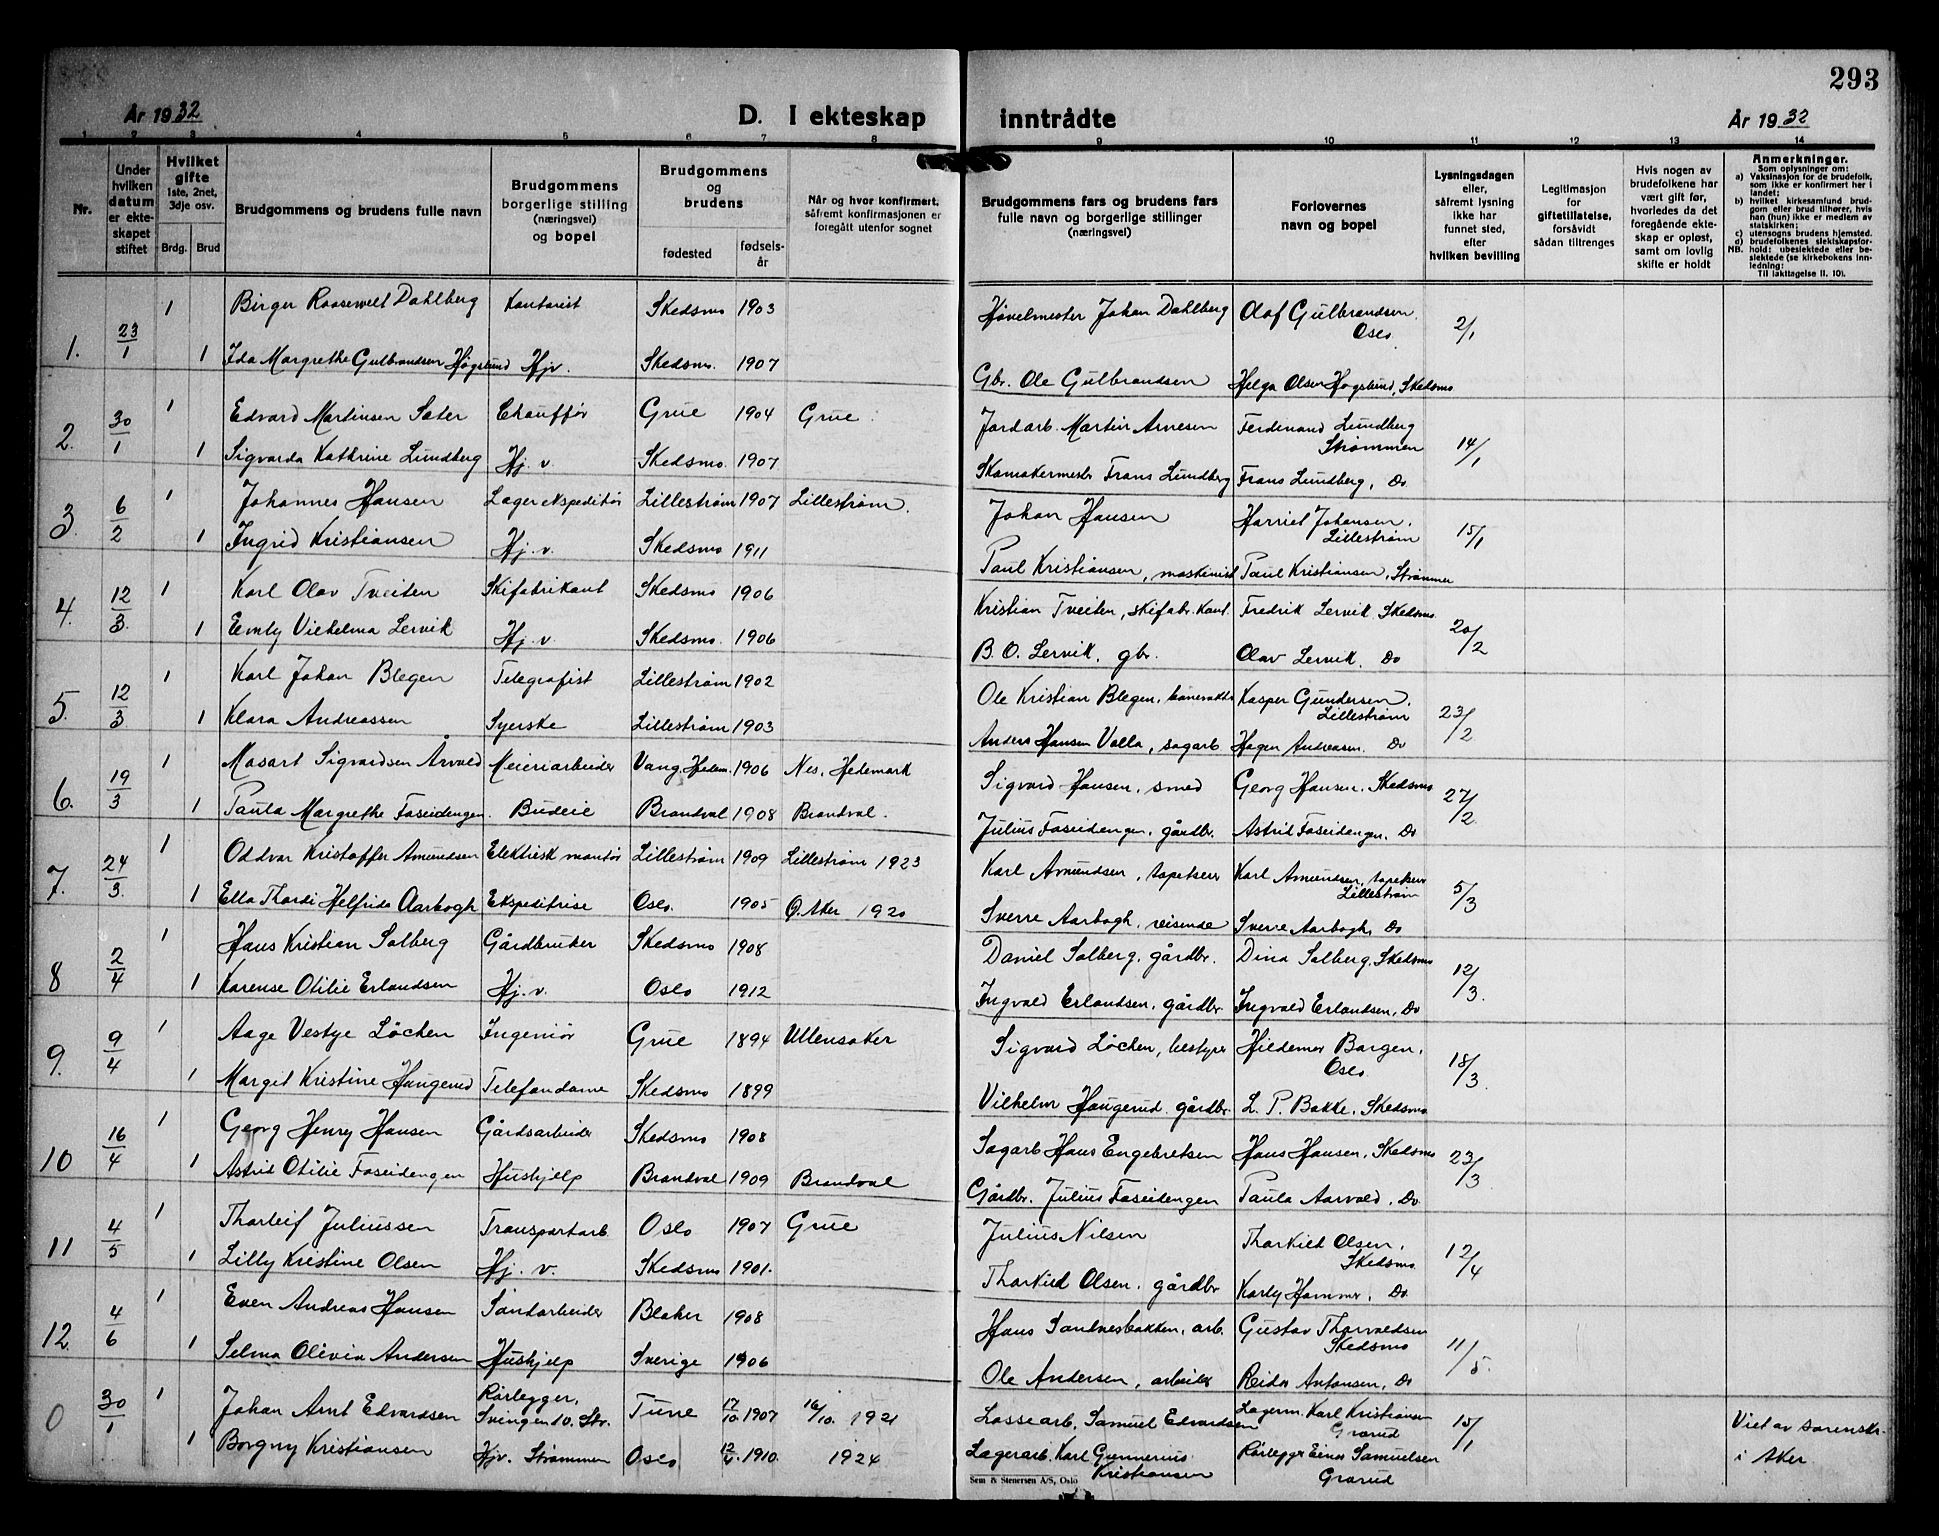 293
År 1932
D. I ekteskap inntrådte
År 1932
1 2 3 4 5 6 7 8 9 10 11 12 13 14
Nr.
Under hvilken datum er ekteskapet stiftet
Hvilket gifte 1ste, 2net, 3dje osv.
Brdg. Brud
Brudgommens og brudens fulle navn
Brudgommens borgerlige stilling (næringsvei) og bopel
Brudgommens og brudens
fødested
fødselsår
Når og hvor konfirmert, såfremt konfirmasjonen er foregått utenfor sognet
Brudgommens fars og brudens fars fulle navn og borgerlige stillinger (næringsvei)
Forlovernes navn og bopel
Lysningsdagen eller, såfremt lysning ikke har funnet sted, efter hvilken bevilling
Legitimasjon for giftetillatelse, forsåvidt sådan tiltrenges
Hvis nogen av brudefolkene har vært gift før, hvorledes da det foregående ekteskap er opløst, samt om lovlig skifte er holdt
Anmerkninger.
Som oplysninger om:
a) Vaksinasjon for de brudefolk, som ikke er konfirmert her i landet;
b) hvilket kirkesamfund brudgom eller brud tilhører, hvis han (hun) ikke er medlem av statskirken;
c) utensogns brudens hjemsted.
d) brudefolkenes slektskapsforhold: ubeslektede eller beslektede (se kirkebokens innledning:
NB. Til iakttagelse II. 10).
1. 23/1 1 Birger Roosewelt Dahlberg Kontorist Skedsmo 1903 Høvelmester Johan Dahlberg Olaf Gulbrandsen, Oslo 2/1
1 Ida Margrethe Gulbrandsen Høgslund Hjv. Skedsmo. 1907 Gbr. Ole Gulbrandsen Helga Olsen Høgslund, Skedsmo
2. 30/1 1 Edvard Martinsen Sater Chauffør Grue 1904 Grue. Jordarb. Martin Arnesen Ferdinand Lundberg Strømmen 14/1
1 Sigvarda Kathrine Lundberg Hj. v. Skedsmo. 1907 Skomakermester Frans Lundberg Frans Lundberg, Do
3. 6/2 1 Johannes Hansen Lagerekspeditør Lillestrøm 1907 Lillestrøm. Johan Hansen Harriet Johansen, Lillestrøm 15/1
1 Ingrid Kristiansen Hj. v. Skedsmo 1911 Paul Kristiansen, maskinist Paul Kristiansen, Strømmen
4. 12/3 1 Karl Olav Tveiten Skifabrikant Skedsmo 1906 Kristian Tveiten, skifabrikant. Fredrik Lervik, Skedsmo 20/2
1 Emly Vilhelma Lervik Hj. v. Skedsmo. 1906 B.O. Lervik, gbr. Olav Lervik, Do
5. 12/3 1 Karl Johan Blegen Telegrafist Lillestrøm 1902 Ole Kristian Blegen, Kasper Gundersen, Lillestrøm 23/2
1 Klara Andreassen Syerske Lillestrøm 1903 Anders Hansen Valla, sagarb Hagen Andreasen. Do
6. 19/3 1 Mosart Sigvardsen Årvold Meieriarbeider Vang, Hedem. 1906 Nes, Hedemark Sigvard Hansen, smed Georg Hansen, Skedsmo 27/2
1 Paula Margrethe Foseidengen. Budeie Brandval 1908 Brandval. Julius Foseidengen, gårdbr. Astrid Foseidengen, Do
7. 24/3 1 Oddvar Kristoffer Amundsen Elektrisk montør Lillestrøm 1909 Lillestrøm 1923 Karl Amundsen, tapetserer Karl Amundsen, tapetserer Lillestrøm 5/3
1 Ella Thordi Helfride Aarbogh Ekspeditrise Oslo. 1905 Ø. Aker 1920 Sverre Aarbogh, reisende Sverre Aarbogh, Do
8 2/4 1 Hans Kristian Solberg Gårdbruker Skedsmo 1908 Daniel Solberg, gårdbr. Dina Solberg, Skedsmo 12/3.
1 Karense Otilie Erlandsen Hj. v. Oslo 1912 Ingvald Erlandsen, gårdbr. Ingvald Erlandsen, Do
9. 9/4 1 Aage Vestye Løchen Ingeniør Grue 1894 Ullensaker Sigvard Løchen, bestyrer Hildemor Borgen, Oslo 18/3.
1 Margit Kristine Haugerud Telefondame Skedsmo 1899 Vilhelm Haugerud gårdbr. L. P. Bakke, Skedsmo
10 16/4 1 Georg Henry Hansen Gårdsarbeider Skedsmo 1908 Sagarb Hans Engebretsen Hans Hansen, Skedsmo 23/3
1 Astrid Otilie Foseidengen Hushjelp Brandval 1909 Brandval Gårdbr. Julius Foseidengen Paula Aarvold, Do
11 4/5 1 Thorleif Juliussen Transportarb. Oslo 1907 Grue Julius Nilsen Thorkild Olsen, Skedsmo 12/4
1 Lilly Kristine Olsen Hj. v. Skedsmo 1901. Thorkild Olsen, gårdbr Karly Hammer, Do.
12. 4/6 1 Even Andreas Hansen Sandarbeider Blaker 1908 Hans Sandnesbakken, arb. Gustav Thorvaldsen Skedsmo 11/5
1 Selma Olivia Andersen Hushjelp Sverige 1906 Ole Andersen, arbeider Reidar Antonsen, Do
0 30/1 1 Johan Arnt Edvardsen Rørlegger, Svingen Tune 17/10 1907 16/10. 1921 Lossearb. Samuel Edvardsen Lagerm. Karl Kristiansen Grorud 15/1 Viet av sorenskr. i Aker
1 Borgny Kristiansen Hjv. Strømmen Oslo 1910. 1924 Lagerarb. Karl Gunnerius Kristiansen Rørlegger Einar Samuelsen Grorud
Sem & Stenersen A/S, Oslo